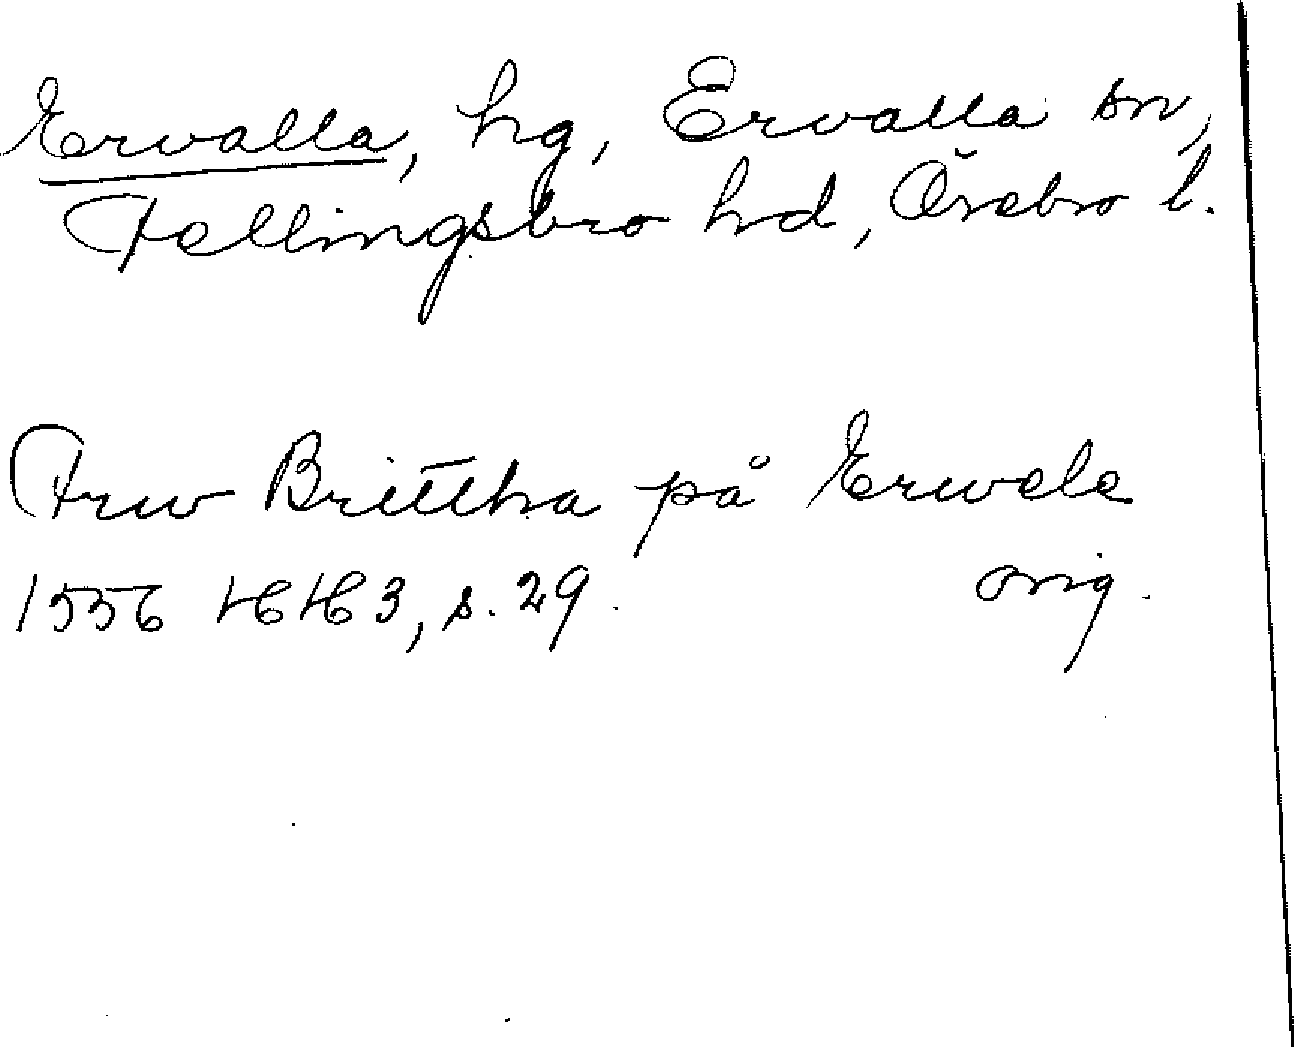 Ervalla, hg, Ervalla sn,
Fellingsbro hd, Örebro l.
Frw Brittha på Erwele
1556 HH 3, s. 29. orig.